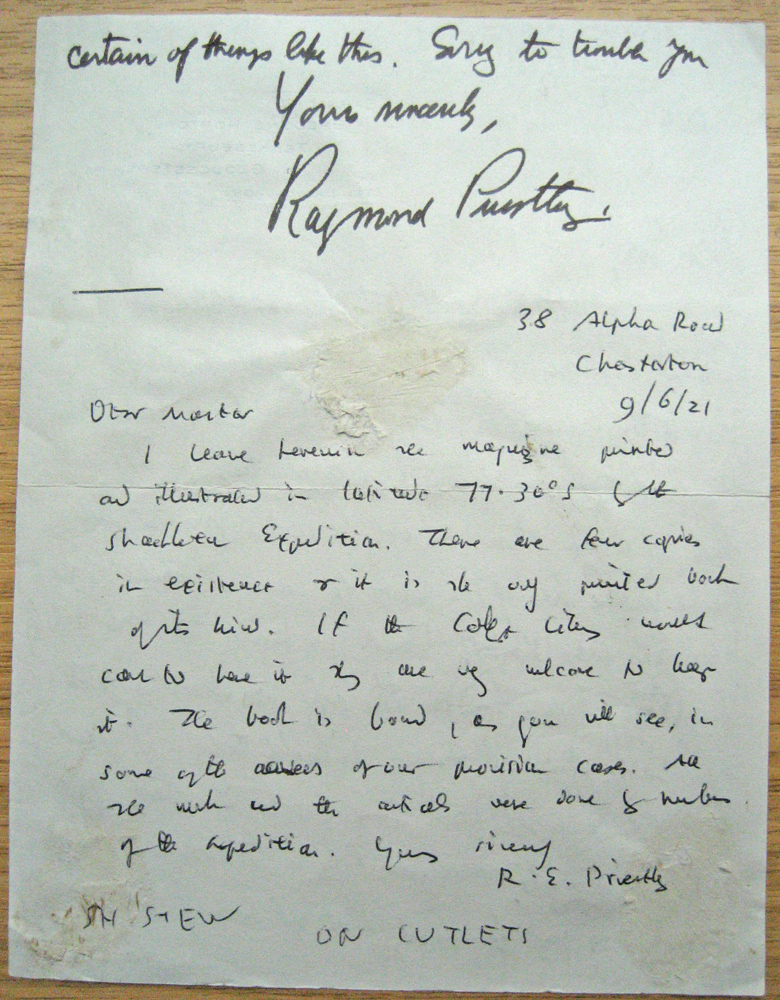 certain of things like this. Sorry to trouble you
Yours sincerely,
Raymond Priestley.
38 Alpha Road
Chesterton
9/6/21
Dear Master
I leave herewith the magazine printed
and illustrated in latitude 77.30°S by the
Shackleton Expedition. There are few copies
in existence & it is the only printed book
of its kind. If the College Library would
care to have it they are very welcome to keep
it. The book is bound, as you will see, in
some of the of our provision cases. All
the work and the articles were done by members
of the expedition. Yours sincerely
R. E. Priestley
STEW
ON CUTLETS